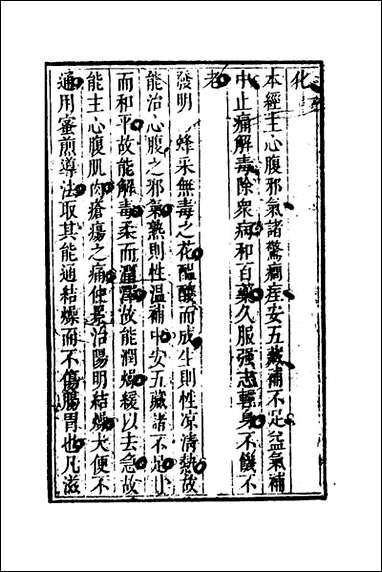 化
本經主心腹邪氣諸驚癇痓安五藏補不足益氣補
中止痛解毒除衆病和百藥久服强志輕身不饑不
老
發明蜂采無毒之花醞釀而成生則性凉清熱故
能治心腹之邪氣熟則性溫補中安五藏諸不足甘
而和平故能解毒柔而濡澤故能潤燥緩以去急故
能主心腹肌肉瘡瘍之痛仲景治陽明結燥大便不
通用蜜煎導法取其能通結燥而不傷腸胃也凡滋